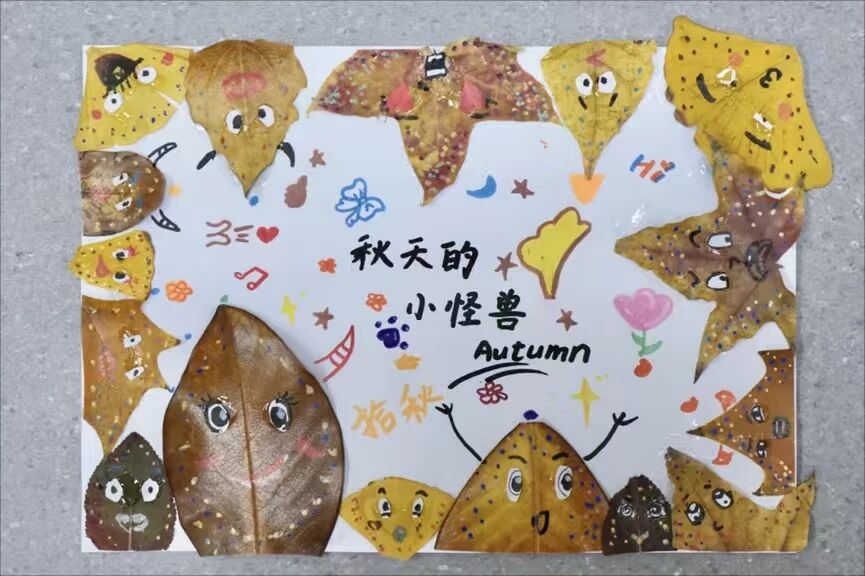 Hi
秋天的
小怪兽
Autumn
拾秋